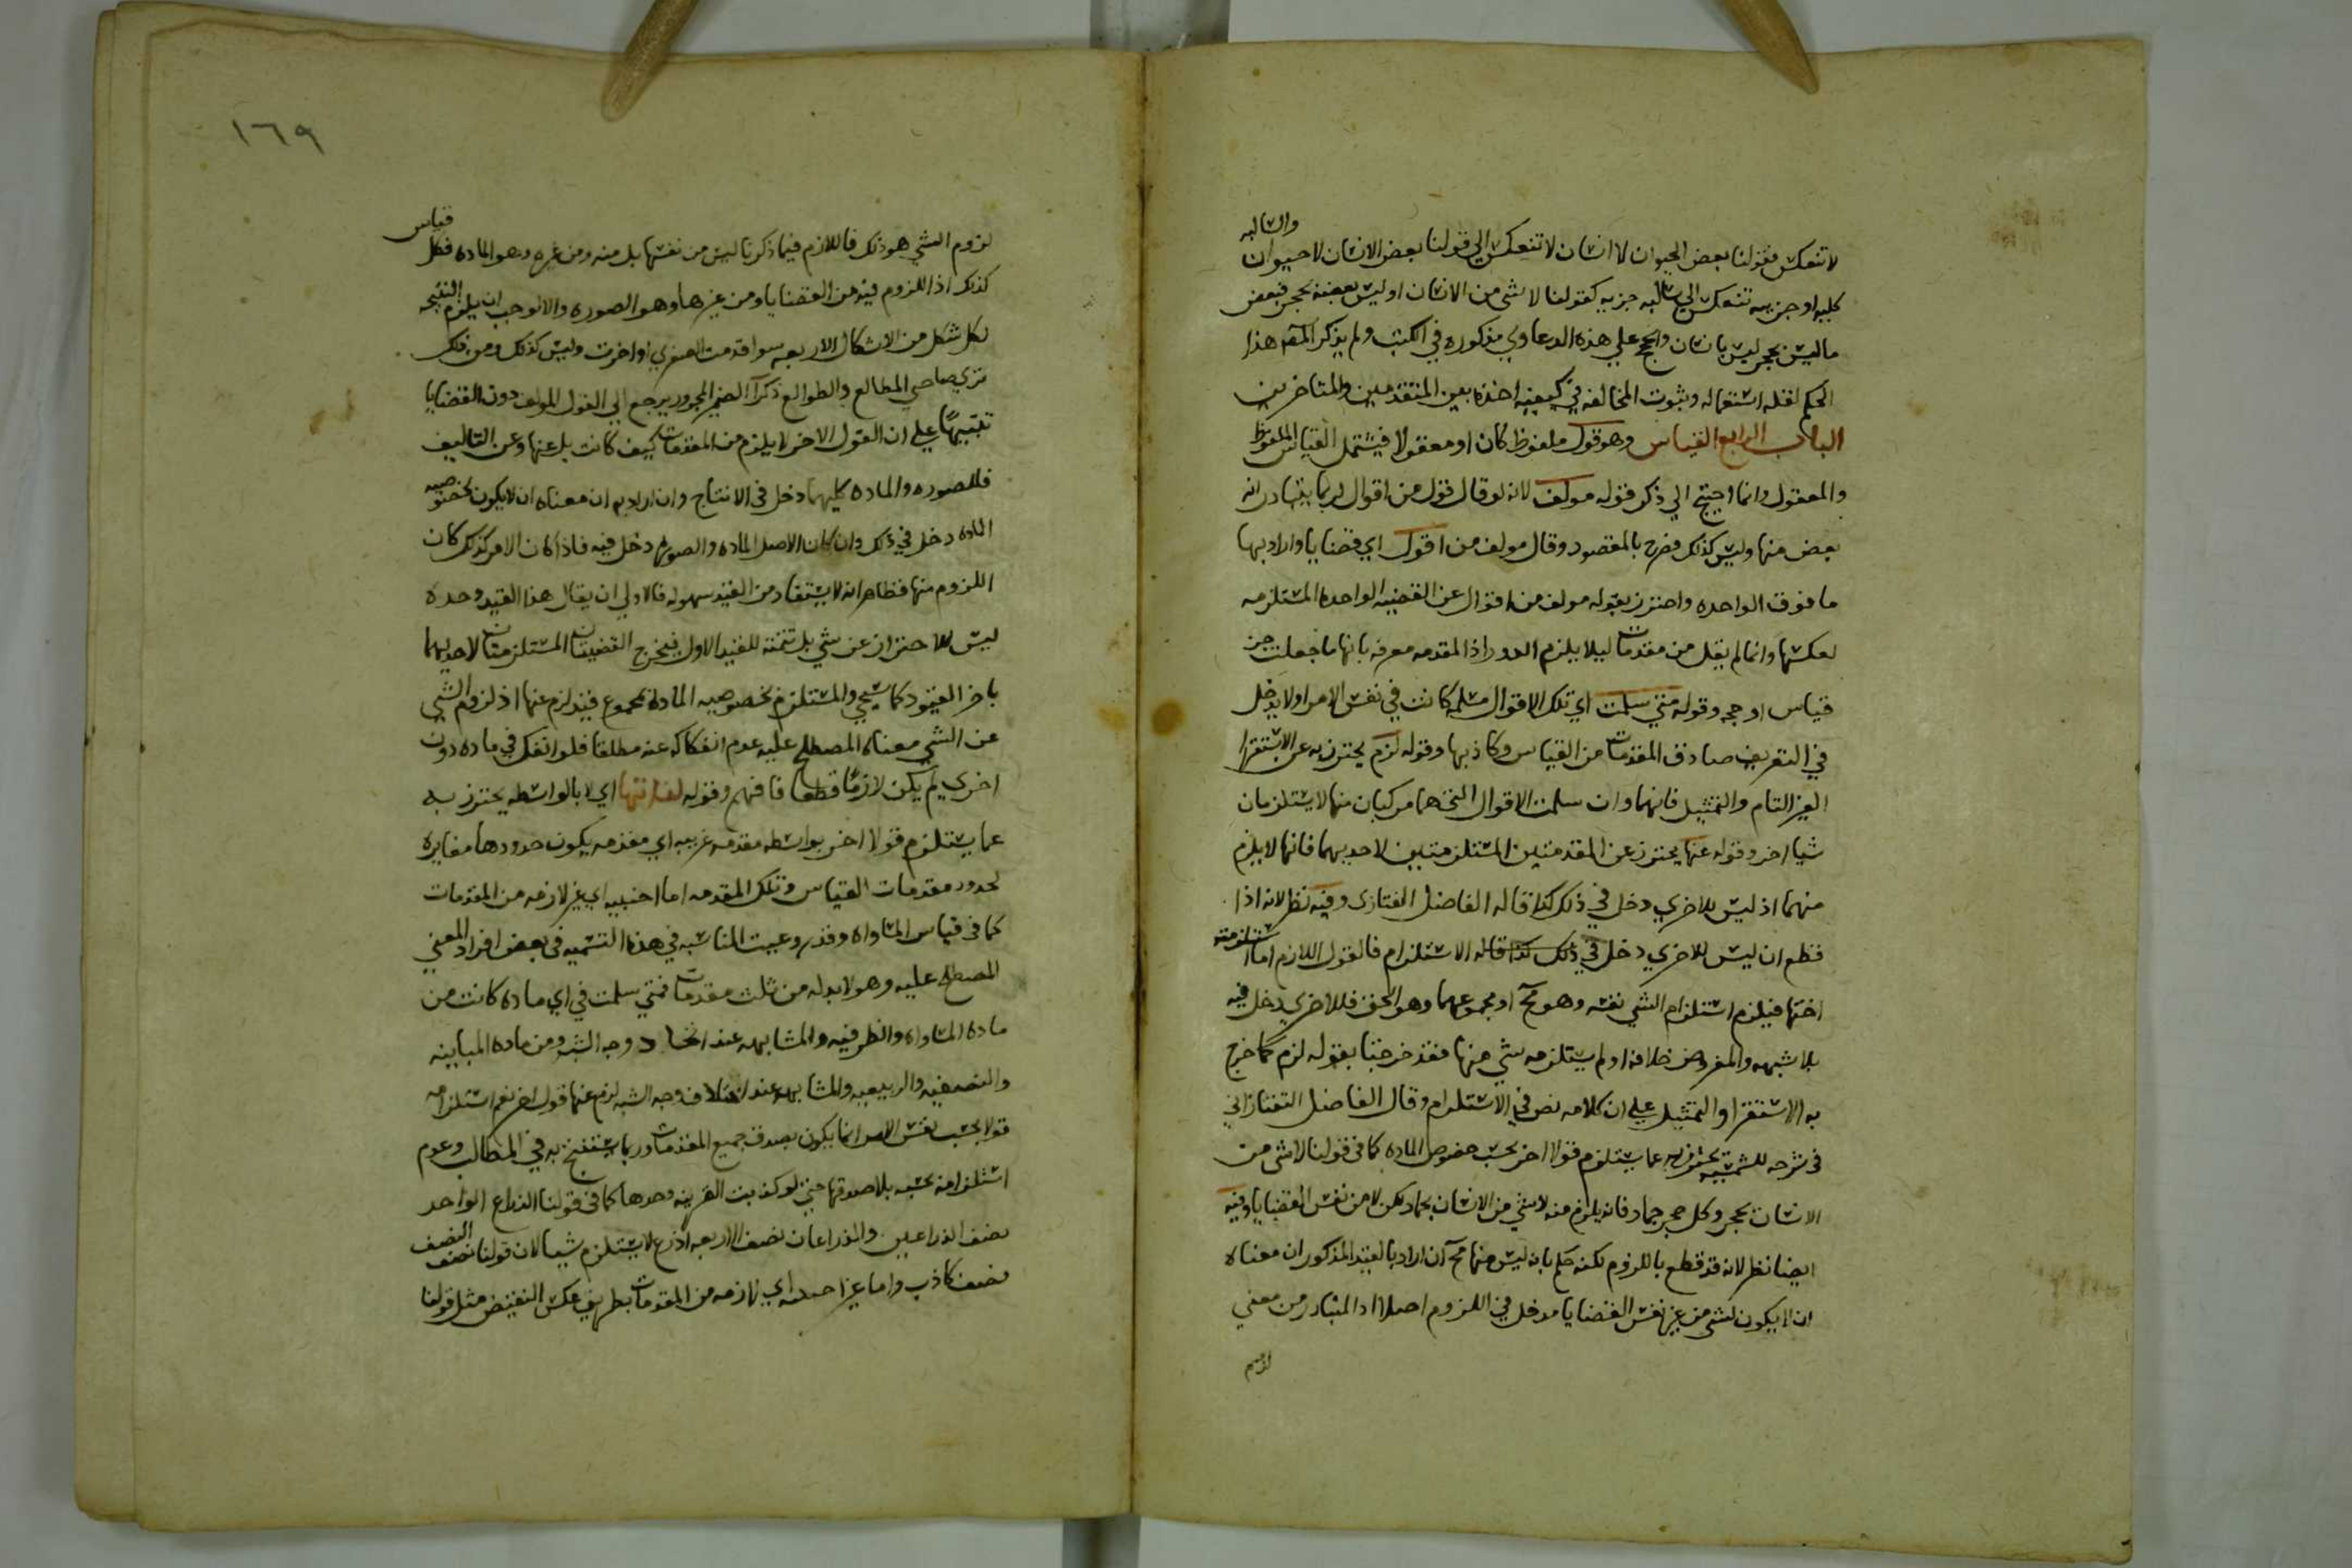 والسالبه
لا تنعكس فقولنا بعض الحيوان لا انسان لا تنعكس الي قولنا بعض الانسان لا حيوان
كليه او جزييه تنعكس الي سالبه جزييه كقولنا لا شي من الانسان او ليس بعضه بحجر فبعض
ما ليس بحجر ليس بانسان والحجج علي هذه الدعاوي مذكوره في الكتب ولم يذكر المص هذا
الحكم لقله استعماله وثبوت المخالفه في كيفيه اخذه بعين المتقدمين والمتاخرين
الباب الرابع القياس وهو قول ملفوظ كان او معقولا فيشتمل القياس الملفوظ
والمعقول وانما احتيج الي ذكر قوله مولف لانه لو قال قول من اقوال لربما يتبادر انه
بعض منها وليس كذلك فصرح بالمقصود وقال مولف من اقوال اي قضايا واراد بها
ما فوق الواحده واحترز بقوله مولف من اقوال عن القضيه الواحده المستلزمه
لعكسها وانما لم يقل من مقدمات ليلا يلزم الدور اذا المقدمه معرفه بانها ما جعلت جز
قياس او حجه وقوله متي سلمت اي تلك الاقوال مسلمه كانت في نفس الامر اولا يدخل
في التعريف صادق المقدمات من القياس وكاذبها وقوله لزم يحترز به عن الاستقرا
الغير التام والتمثيل فانهما وان سلمت الاقوال التي هما مركبان منها لا يستلزمان
شيا اخر وقوله عنها يحترز عن المقدمتين المستلزمتين لاحديهما فانها لا يلزم
منهما اذ ليس للاخري دخل في ذلك كذا قاله الفاضل الفنارى وفيه نظر لانه اذا
قطع ان ليس للاخري دخل في ذلك كذا قاله الاستلزام فالقول اللازم اما
اختها فيلزم استلزام الشي نفسه وهو مح او مجموعهما وهو الحق فللاخري دخل فيه
بلا شبهه والمفروض خلافه او لم يستلزمه شي منها فقد خرجتا بقوله لزم كما خرج
به الاستقرا والتمثيل علي ان كلامه نص في الاستلزام وقال الفاضل التفتازاني
في شرحه للشمسيه يحترز به عما يستلزم قولا اخر بحسب خصوص الماده كما في قولنا لا شي من
الانسان بحجر وكل حجر جماد فانه يلزم منه لا شي من الانسان بجماد لكن لا من نفس القضايا وفيه
ايضا نظر لانه قد قطع باللزوم لكنه حكم بانه ليس منها مح ان اراد بالقيد المذكور ان معناه
ان لا يكون لشي من غير نفس القضايا مدخل في اللزوم اصلا اذ المتبادر من معني
لزوم
١٦٩
لزوم الشي هو ذلك فاللازم فيما ذكرنا ليس من نفسها بل منه ومن غيره وهو الماده فكل قياس
كذلك اذ اللزوم فيه من القضايا ومن غيرها وهو الصوره والا لوجب ان يلزم النتيجه
لكل شكل من الاشكال الاربعه سوا قدمت الصغري او اخرت وليس كذلك ومن ذلك
تري صاحبي المطالع والطوالع ذكرا الضمير المجرور يرجع الي القول المولف دون القضايا
تنبيها علي ان القول الاخر لا يلزم من المقدمات كيف كانت بل عنها وعن التاليف
فللصوره والماده كليهما دخل في الانتاج وان اراد به ان معناه ان لا يكون لخصوصيه
الماده دخل في ذلك وان كان لاصل الماده والصوره دخل فيه فاذا كان الامر كذلك كان
اللزوم منها فظاهر انه لا يستفاد من القيد سهوله فالاولي ان يقال هذا القيد وحده
ليس للاحتراز عن شي بل تتمه للقيد الاول فيخرج القضيتان المستلزمتان لاحديهما
باخر القيود كما سيجي والمستلزم بخصوصيه الماده بمجموع قيد لزم عنها اذ لزوم الشي
عن الشي معناه المصطلح عليه عدم انفكاكه عنه مطلقا فلو انفك في ماده دون
اخري لم يكن لازما قطعا فافهم وقوله لذاتها اي لا بالواسطه يحترز به
عما يستلزم قولا اخر بواسطه مقدمه غريبه اي مقدمه يكون حدودها مغايره
لحدود مقدمات القياس وتلك المقدمه اما اجنبيه اي غير لازمه من المقدمات
كما في قياس المساواه وقد روعيت المناسبه في هذه التسميه في بعض افراد المعني
المصطلح عليه وهو لا بد له من ثلث مقدمات فمتي سلمت في اي ماده كانت من
ماده المساواه والظرفيه والمشابهه عند اتحاد وجه الشبه ومن ماده المباينه
والنصفيه والربعيه والمشابهه عند اختلاف وجه الشبه لزم عنها قول اخر نعم استلزامه
قولا بحسب نفس الامر انما يكون بصدق جميع المقدمات وربما يستنتج به في المطالب وعدم
استلزامه بحسبه بلا صدقها حتي لو كذبت الغريبه وحدها كما في قولنا الذراع الواحد
نصف الذراعين والذراعان نصف الاربعه اذرع لا يستلزم شيا لان قولنا نصف النصف
نصف كاذب واما غير اجنبيه اي لازمه من المقدمات بطريق عكس النقيض مثل قولنا